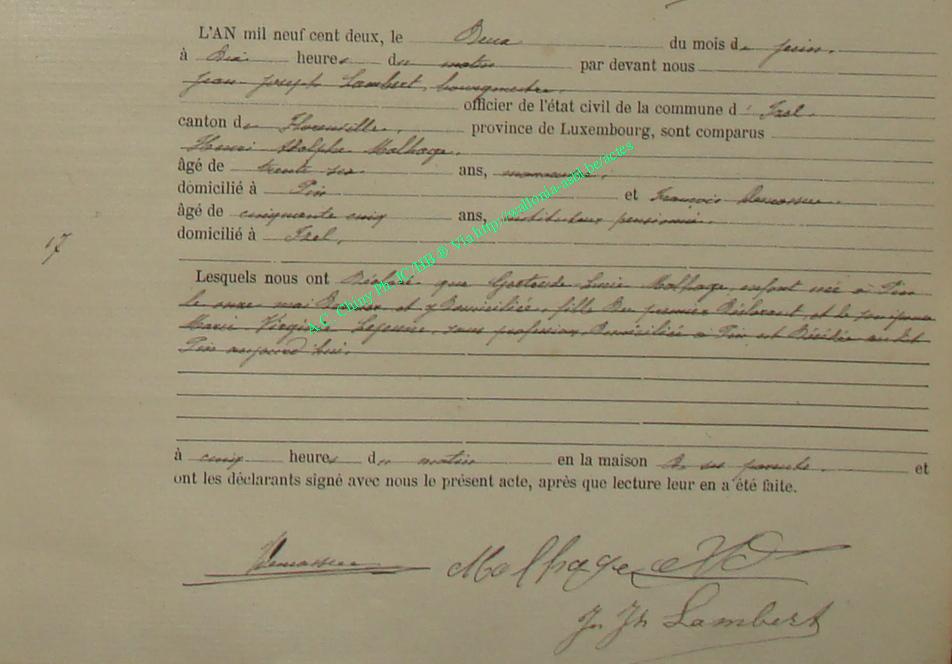 L'AN mil neuf cent deux, le Deux du mois de juin.
à Dix heures du matin par devant nous
Jean Joseph Lambert, bourgmestre,
officier de l'état civil de la commune d' Izel.
canton de Florenville, province de Luxembourg, sont comparus
Henri Adolphe Malhage,
âgé de trente six ans, manoeuvre,
domicilié à Pin et François Demasseur
âgé de cinquante cinq ans, instituteur pensionné.
domicilié à Izel,
17
Lesquels nous ont Déclaré que Gertrude Lucie Malhage, enfant née à Pin
le onze mai Dernier et y Domiciliée, fille Du premier Déclarant, et de
Marie Virginie sans profession, Domiciliée à Pin est Décédée au dit
Pin aujourd'hui.
à cinq heures du matin en la maison De ses parents. et
ont les déclarants signé avec nous le présent acte, après que lecture leur en a été faite.
Malhage
Jn Jh Lambert
A.C. Chiny Ph JC/HB ® Via http://wallonia-asbl.be/actes